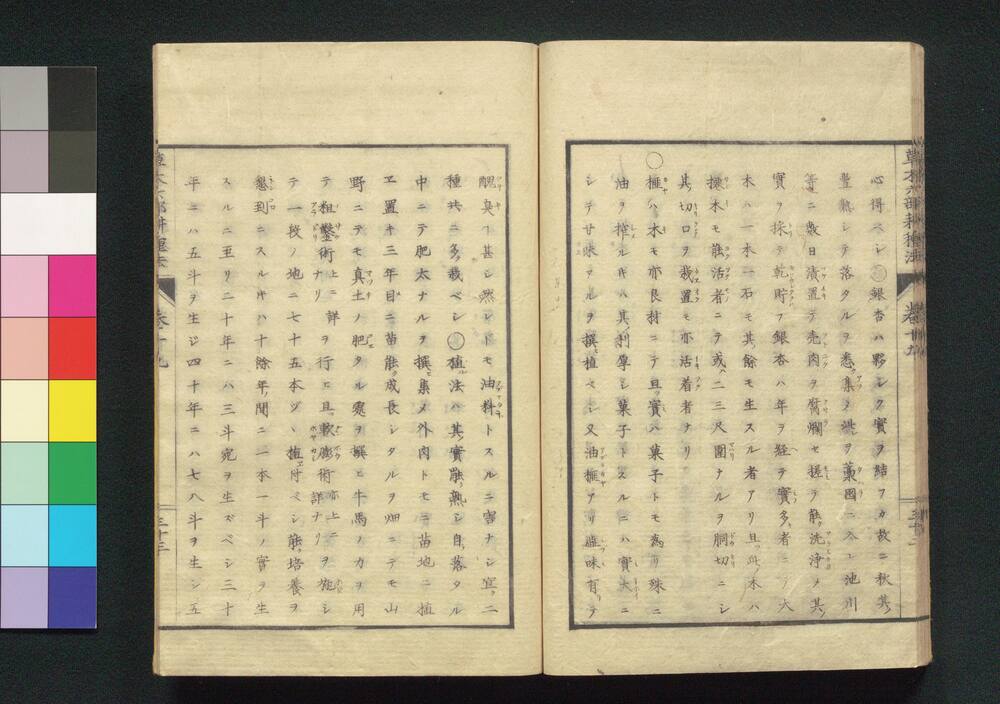 心得ベシ○銀杏ハ夥シク實ヲ結フカ故ニ秋其
豊熟シテ落タルヲ悉集メ拱ヲ藁圍ニ入レ池川
等ニ数日漬置テ売肉ヲ腐爛セ搓テ能洗浄メ其
實ヲ採テ乾貯フ銀杏ハ年ヲ経テ實多者ニテ大
木ハ一木一石モ其餘モ生スル者アリ且此木ハ
操木モ能活者ニテ或ハ二三尺圍ナルヲ胴切ニシ
其切口ヲ栽置モ亦活着者ナリ
○榧ハ木モ亦良材ニテ且實ハ菓子トモ為リ殊ニ
油ヲ搾ルキハ其利厚シ菓子トスルニハ實大ニ
シテ甘味アルヲ撰植ベシ又油榧アリ澁味有テ
醜臭丨甚シ然レトモ油料トスルニ害ナシ宜ニ
種共ニ多栽ベシ○植法ハ其實能熟シ自落タル
中ニテ肥太ナルヲ撰ヒ集メ外肉トモニ苗地ニ植
ヱ置キ三年目ニ苗能成長シタルヲ畑ニテモ山
野ニテモ真土ノ肥タル處ヲ撰ヒ牛馬ノカヲ用
テ粗墾術上ニ詳ナリヲ行ヒ且軟膨術亦上ニ詳ナリヲ施シ
テ一段ノ地ニ七十五本ヅヽ植付ベシ能培養ヲ
懇到ニスルキハ十餘年間ニ一本一斗ノ實ヲ生
スルニ至リ二十年ニハ三斗宛ヲ生ズベシ三十
年ニハ五斗ヲ生ジ四十年ニハ七八斗ヲ生シ五
草木六部耕種法
卷十九
三十三